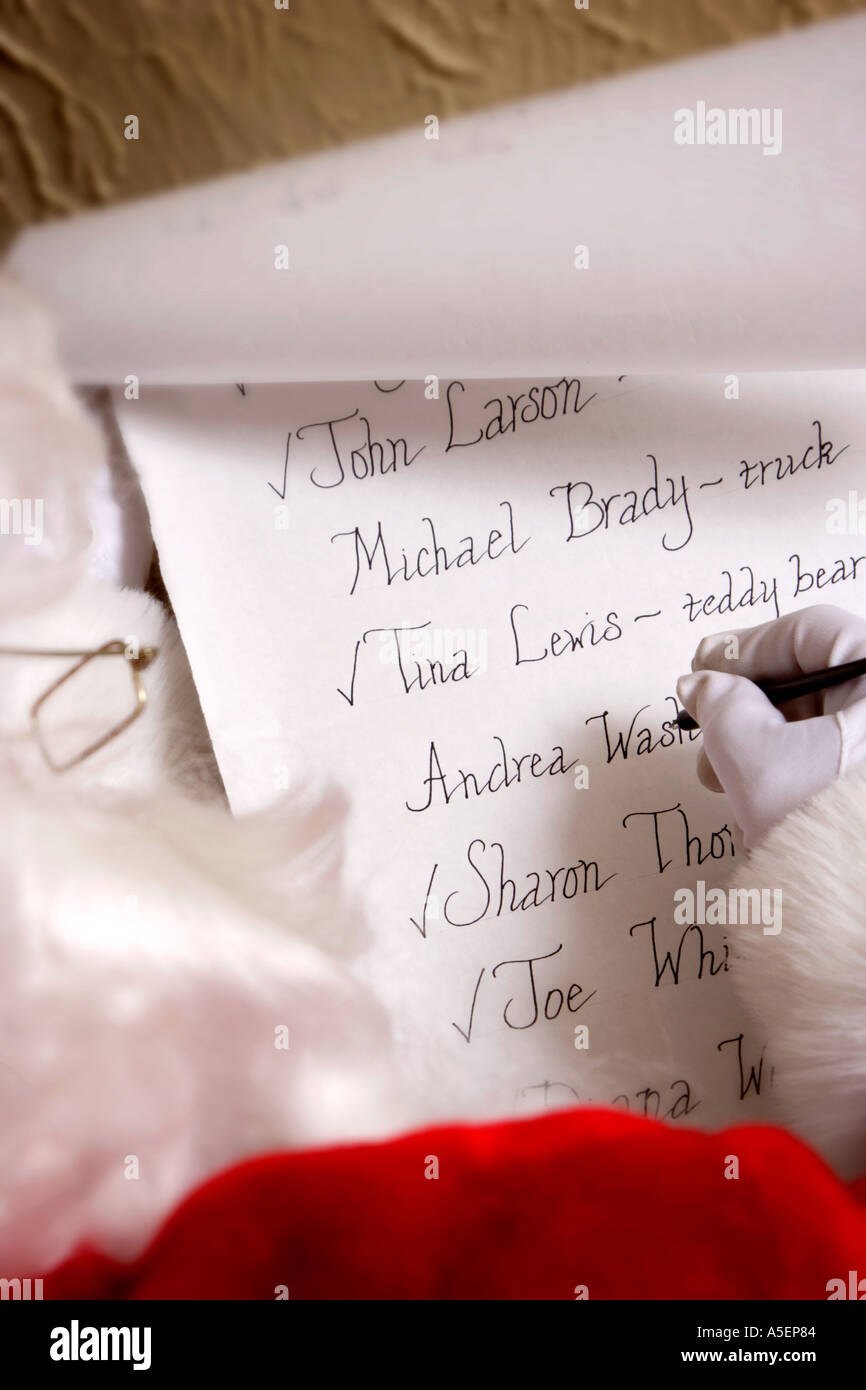 √ John Larson ~
Michael Brady ~ truck
√ Tina Lewis ~ teddy bear
Andrea Wash
√ Sharon Tho
√ Joe Whi
Diana W
alamy
Image ID: A5EP84
www.alamy.com